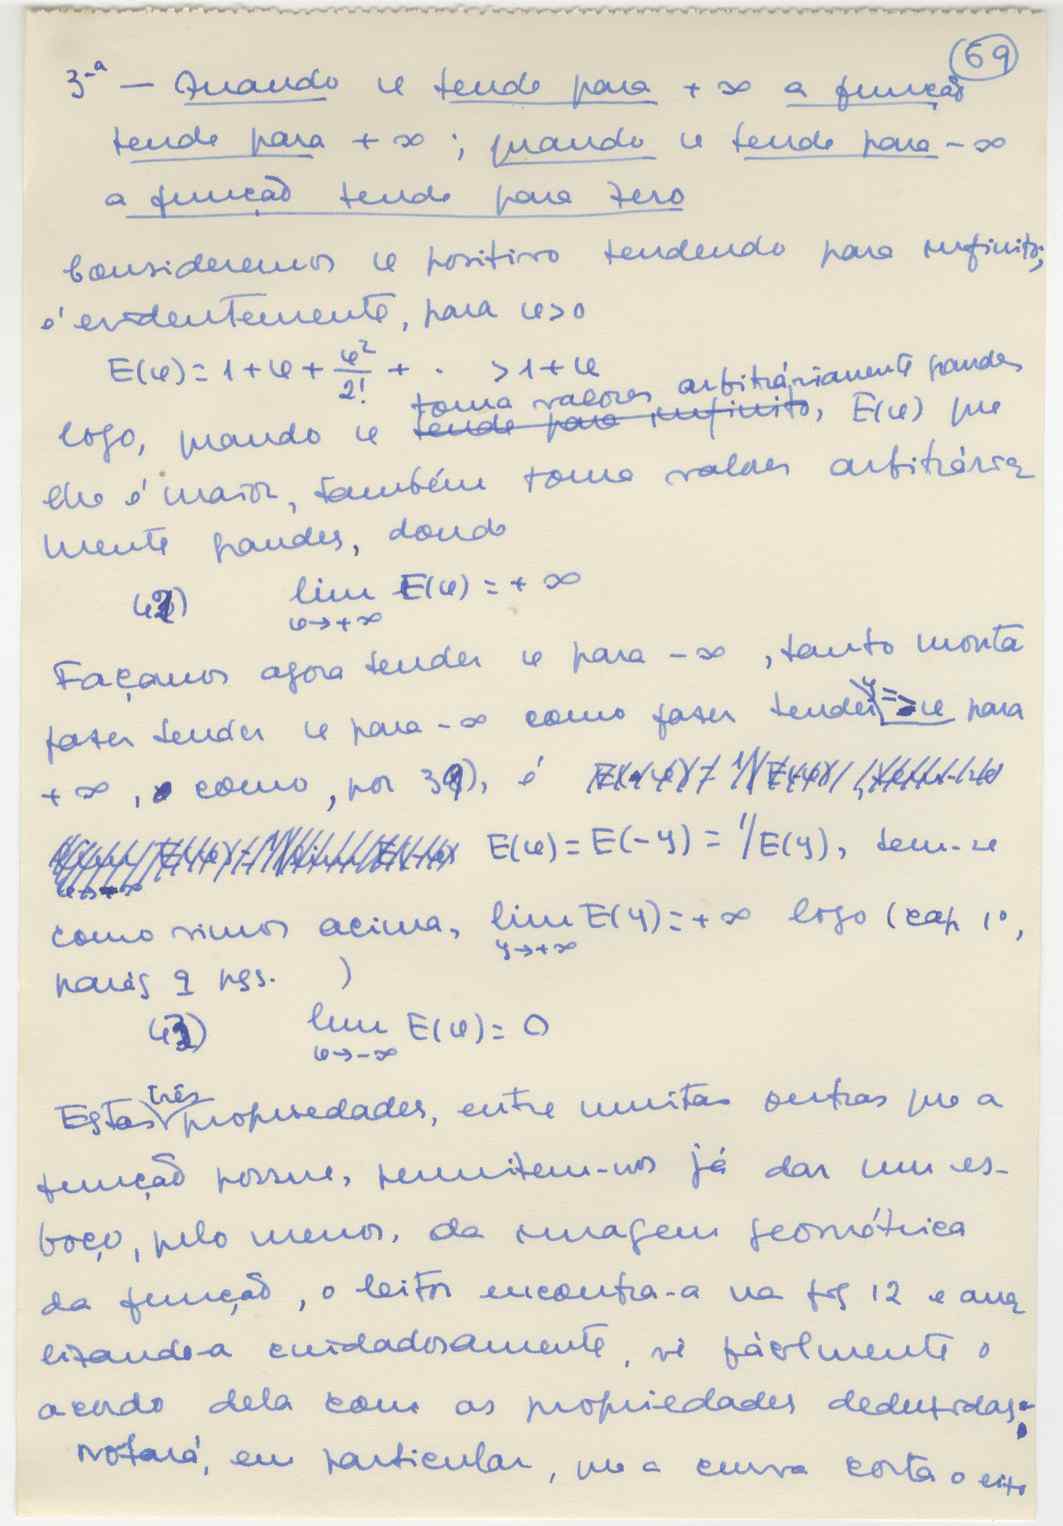 69
3-ª — Quando φ tende para + ∞ a função
tende para + ∞ ; quando φ tende para - ∞
a função tende para zero
Consideremos φ positivo tendendo para infinito;
é evidentemente, para φ>0
E(φ) = 1 + φ + φ²/2! + · > 1 + φ
toma valores arbitràriamente grandes
logo, quando φ tende para infinito, E(φ) que
lhe é maior, também toma valores arbitrária
mente grandes, donde
42) lim E(φ) = + ∞
φ→+∞
Façamos agora tender φ para - ∞, tanto monta
fazer tender φ para - ∞ como fazer tender y = -φ para
+ ∞, como, por 39), é
E(φ) = E(-y) = 1/E(y), tem-se
como vimos acima, lim E(y) = + ∞ logo (cap 1º,
y→+∞
parág 9 pgs. )
43) lim E(φ) = 0
φ→-∞
Estas três propriedades, entre muitas outras que a
função possue, permitem-nos já dar um es-
boço, pelo menos, da imagem geométrica
da função, o leitor encontra-a na fig 12 e ana
lizando-a cuidadosamente, vê fàcilmente o
acordo dela com as propriedades deduzidas:
notará, em particular, que a curva corta o eixo